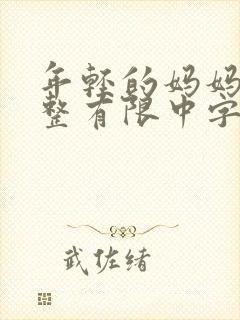 年轻的妈妈
整有限中字
武佐绪